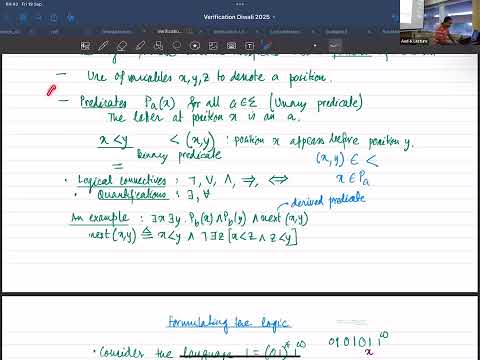 Verification Diwali 2025
— Use of variables x, y, z to denote a position.
— Predicates Pa(x) for all a∈Σ (Unary predicate)
The letter at position x is an a.
x < y    < (x, y) : position x appears before position y.
= Binary predicate    (x, y) ∈ <
x ∈ Pa
• Logical connectives : ¬, ∨, ∧, ⇒, ⇔
• Quantifications : ∃, ∀
derived predicate
An example : ∃x∃y. Pb(x) ∧ Pb(y) ∧ next(x,y)
next(x,y) ≜ x<y ∧ ¬∃z[x<z ∧ z<y]
Formulating the logic
• Consider the language L =
x